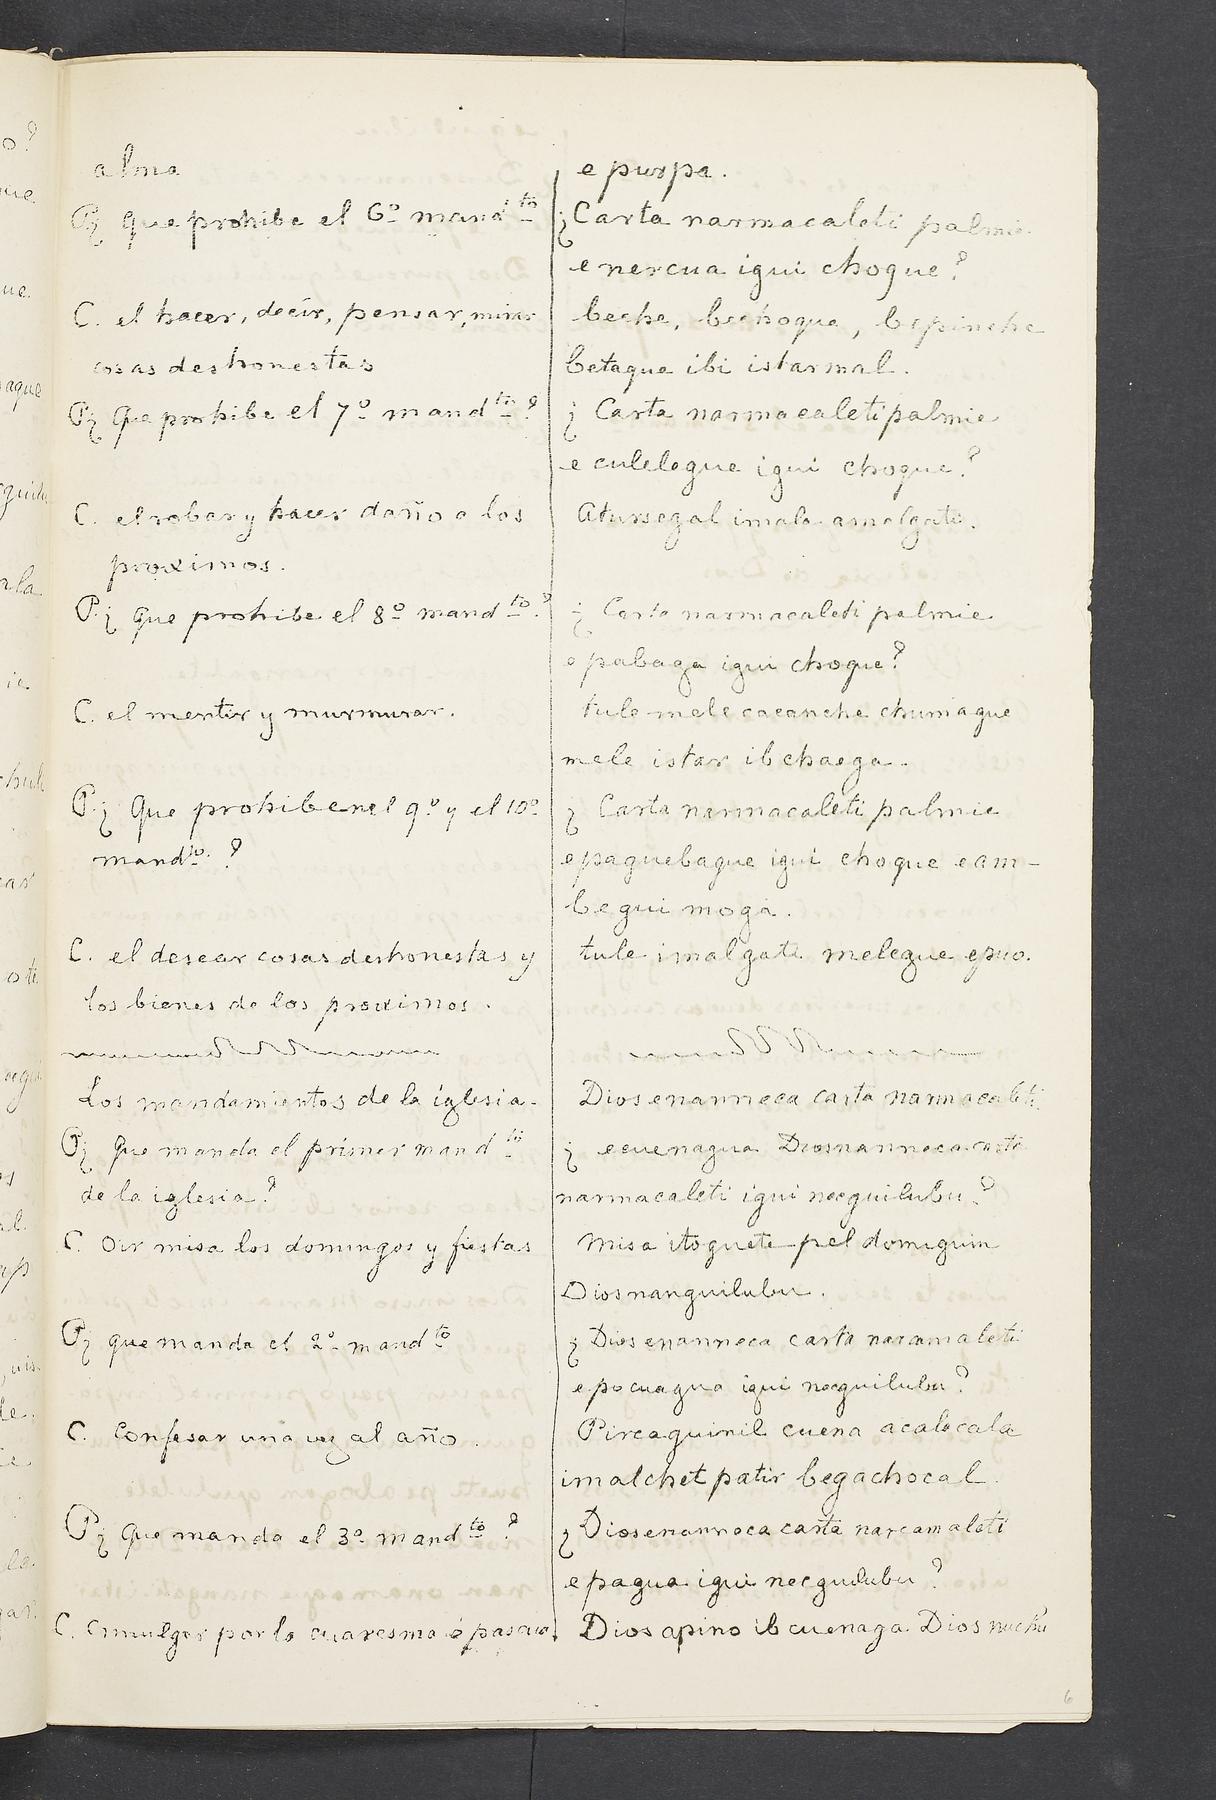 alma
P¿ Que prohibe el 6º mandto
C. el hacer, decir, pensar, mirar
cosas deshonestas
P¿ Que prohibe el 7º mandto?
C. el robar y hacer daño a los
proximos.
P.¿ Que prohibe el 8º mandto?
C. el mentir y murmurar.
P.¿ Que prohibenel 9º y el 10º
mandto. ?
C. el desear cosas deshonestas y
los bienes de los proximos.
Los mandamientos de la iglesia.
P¿ Que manda el primer mandto
de la iglesia?
C. Oir misa los domingos y fiestas
P¿ que manda el 2º mandto
C. Confesar una vez al año.
P¿ Que manda el 3º mandto ?
C. Cmulgar por la cuaresma ó pascua.
e purpa.
¿Carta narmacaleti palmie
e nercua igui choque?
beche, bechoque, bepinche
betaque ibi istarmal.
¿ Carta narmacaleti palmie
e culelegue igui choque?
Atursegal imala amalgati.
¿ Carta narmacaleti palmie
e pabaga igui choque?
tule mele cacanche chumague
mele istar ibchaega.
¿ Carta narmacaleti palmie
epaguebague igui choque eam-
begui moga.
tule imalgati melegue epuo.
Dios enanneca carta narmacaleti
¿ ecuenagua Diosnanneca carta
narmacaleti igui necguilubu?
Misa itoguete pel domiguin
Diosnanguilubu.
¿ Dios enanneca carta narcamaleti
epocuagua igui necguilubu?
Pircaguinil cuena acalocala
imalchet patir begachocal.
¿ Diosenanneca carta narcamaleti
epagua igui necguilubu?
Dios apino ibcuenaga Dios nuchu
6